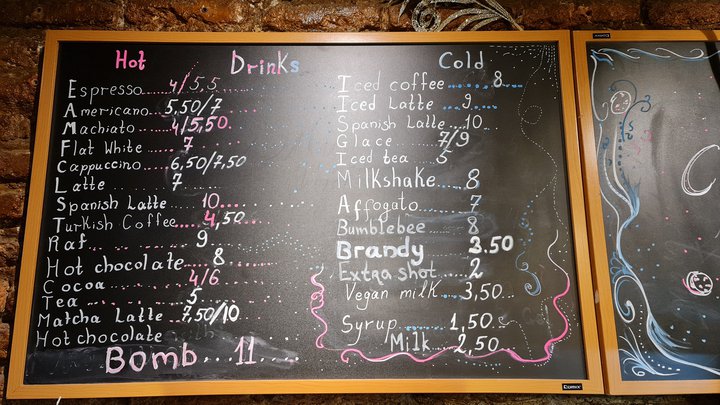 Hot Drinks Cold
Espresso 4/5,5
Americano 5,50/7
Machiato 4/5,50
Flat White 7
Cappuccino 6,50/7,50
Latte 7
Spanish Latte 10
Turkish Coffee 4,50
Raf 9
Hot chocolate 8
Cocoa 4/6
Tea 5
Matcha Latte 7,50/10
Hot chocolate
Bomb 11
Iced coffee 8
Iced Latte 9
Spanish Latte 10
Glace 7/9
Iced tea 5
Milkshake 8
Affogato 7
Bumblebee 8
Brandy 3.50
Extra shot 2
Vegan milk 3,50
Syrup 1,50
Milk 2,50